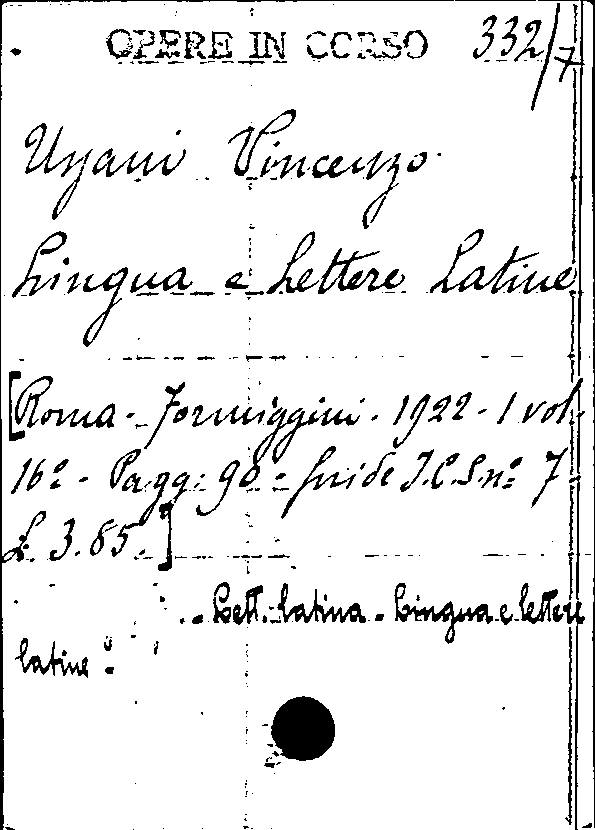 OPERE IN CORSO 332/7
Ussani Vincenzo
Lingua e Lettere Latine
[Roma - Formiggini - 1922 - 1 vol.
16º - Pagg. 90 - Guide I.C.S. nº 7
L. 3.85.]
- Lett. latina - Lingua e lettere
latine -